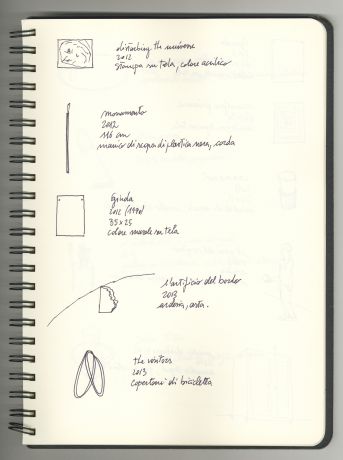 disturbing the universe
2012
stampa su tela, colore acrilico
monumento
2012
116 cm
manico di scopa di plastica nera, corda
Egirda
2012 (1990)
35x25
colore murale su tela
l'artificio del bordo
2013
ardesia, carta.
the visitors
2013
copertoni di bicicletta